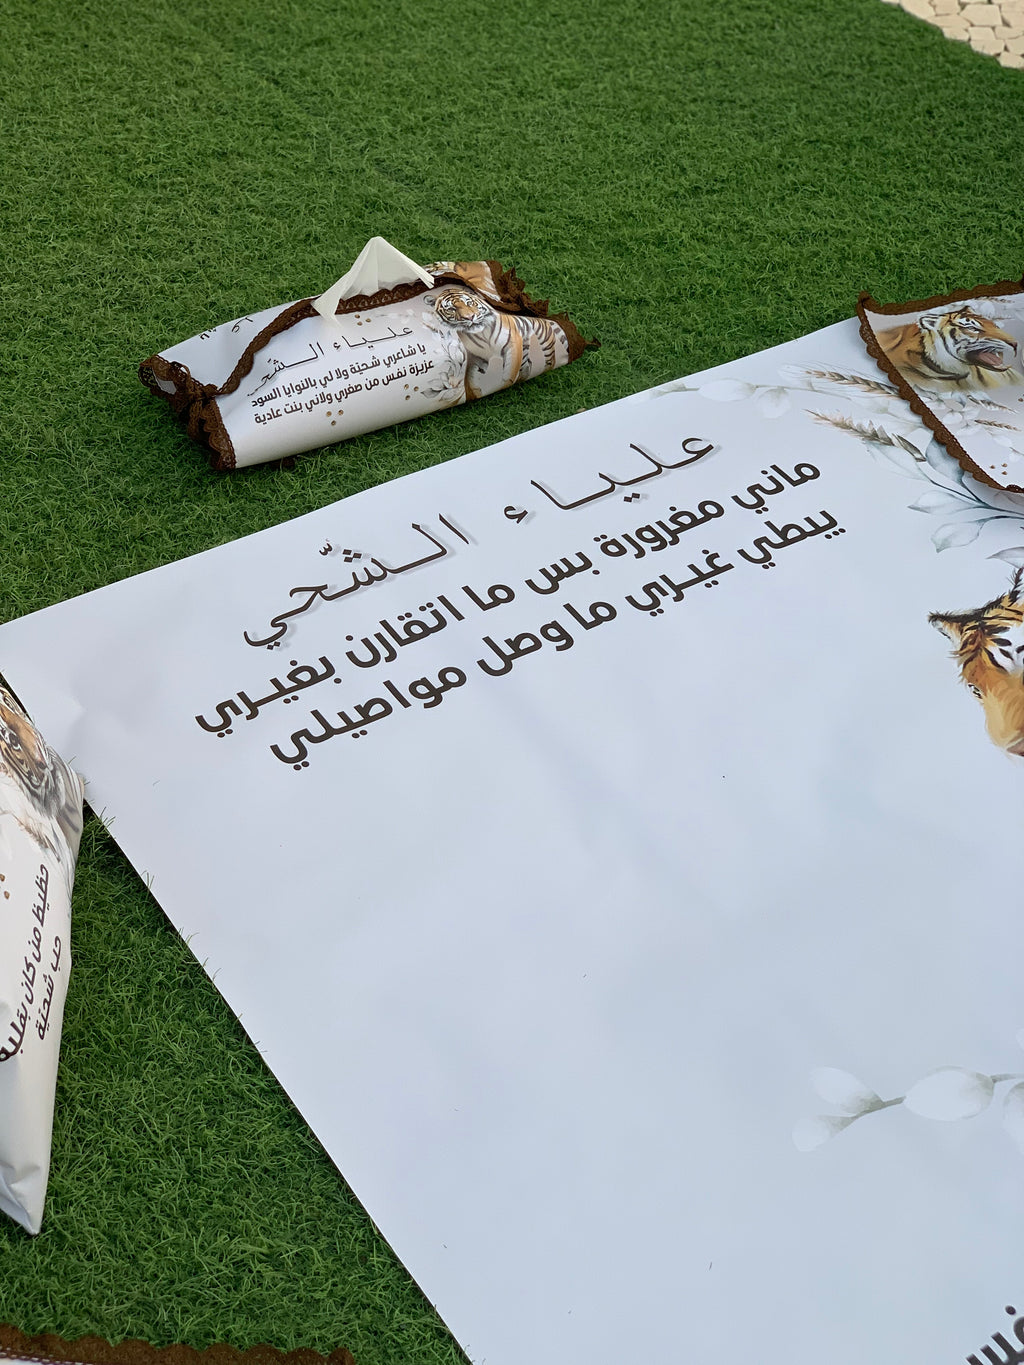 علياء الشّحي
يا شاعري شحيّة ولا لي بالنوايا السود
عزيزة نفس من صغري ولاني بنت عادية
علياء الشّحي
ماني مغرورة بس ما اتقارن بغيري
يبطي غيري ما وصل مواصيلي
حظيظ من كان بقلبه
حب شحيّة